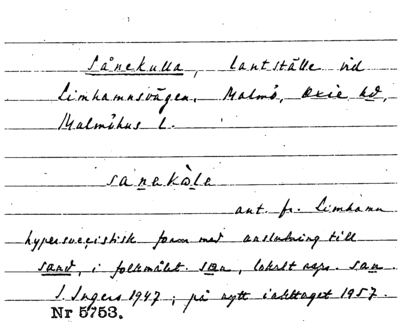 Sånekulla, lantställe vid
Limhamnsvägen, Malmö, Oxie hd,
Malmöhus l.
sanekòla
ant. fr. Limhamn
hypersvecistisk form med anslutning till
sand, i folkmålet san, lokalt uspr. san.
I. Ingers 1947; på nytt iakttaget 1957.
Nr 5753.